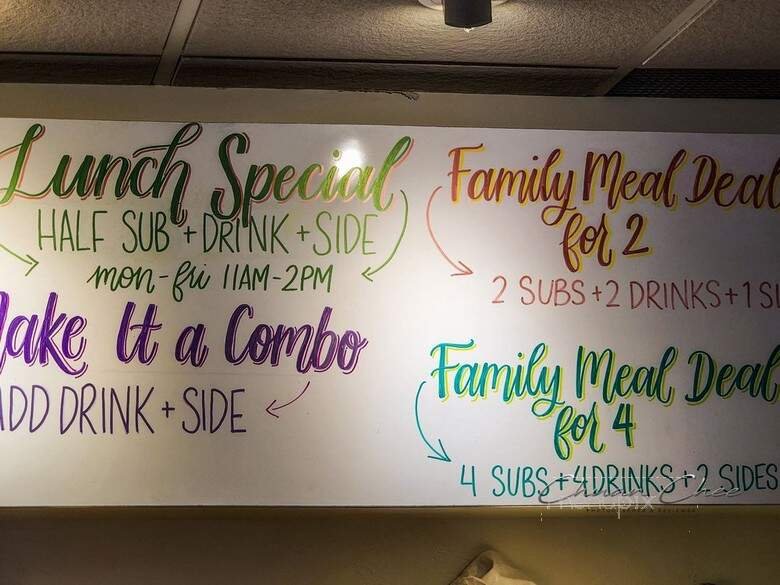 Lunch Special
HALF SUB + DRINK + SIDE
mon-fri 11AM-2PM
Make It a Combo
ADD DRINK + SIDE
Family Meal Deal
for 2
2 SUBS + 2 DRINKS + 1 SI
Family Meal Deal
for 4
4 SUBS + 4 DRINKS + 2 SIDES